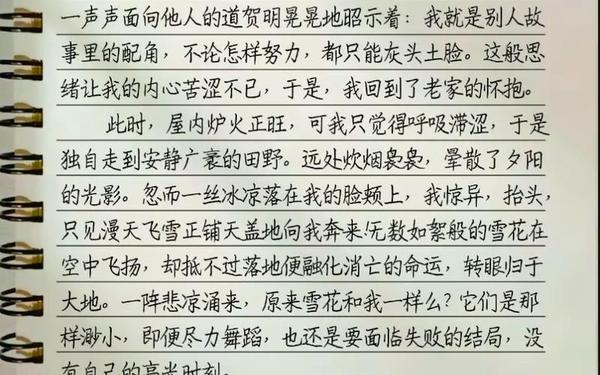 一声声面向他人的道贺明晃晃地昭示着：我就是别人故
事里的配角，不论怎样努力，都只能灰头土脸。这般思
绪让我的内心苦涩不已，于是，我回到了老家的怀抱。
此时，屋内炉火正旺，可我只觉得呼吸滞涩，于是
独自走到安静广袤的田野。远处炊烟袅袅，晕散了夕阳
的光影。忽而一丝冰凉落在我的脸颊上，我惊异，抬头，
只见漫天飞雪正铺天盖地向我奔来！无数如絮般的雪花在
空中飞扬，却抵不过落地便融化消亡的命运，转眼归于
大地。一阵悲凉涌来，原来雪花和我一样么？它们是那
样渺小，即便尽力舞蹈，也还是要面临失败的结局，没
有自己的高光时刻。